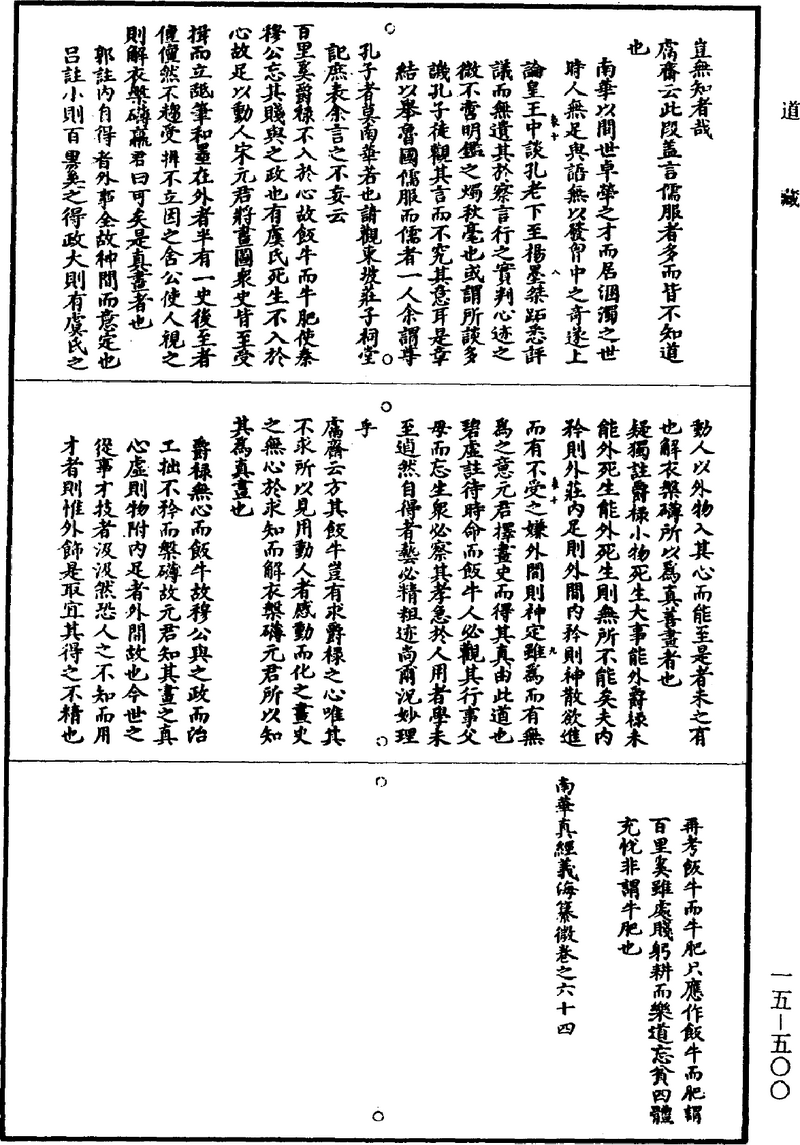 道藏
豈無知者哉
鬳齋云此段蓋言儒服者多而皆不知道
也
南華以間世卓犖之才而居溷濁之世
時人無足與語無以發胷中之奇遂上
論皇王中談孔老下至楊墨桀跖悉評
議而無遺其於察言行之實判心迹之
微不啻明鑑之燭秋毫也或謂所談多
譏孔子徒觀其言而不究其意耳是章
結以舉魯國儒服而儒者一人余謂尊
孔子者莫南華若也請觀東坡莊子祠堂
記庶表余言之不妄云
百里奚爵祿不入於心故飯牛而牛肥使秦
穆公忘其賤與之政也有虞氏死生不入於
心故足以動人宋元君將畫圖衆史皆至受
揖而立舐筆和墨在外者半有一史後至者
儃儃然不趨受揖不立因之舍公使人視之
則解衣槃礴臝君曰可矣是真畫者也
郭註內自得者外事全故神間而意定也
呂註小則百里奚之得政大則有虞氏之
動人以外物入其心而能至是者未之有
也解衣槃礴所以爲真善畫者也
疑獨註爵祿小物死生大事能外爵祿未
能外死生能外死生則無所不能矣夫內
矜則外莊內足則外間內矜則神散欲進
而有不受之嫌外間則神定雖爲而有無
爲之意元君擇畫史而得其真由此道也
碧虛註待時命而飯牛人必觀其行事父
母而忘生衆必察其孝急於人用者學未
至逌然自得者藝必精粗迹尚爾況妙理
乎
鬳齋云方其飯牛豈有求爵祿之心唯其
不求所以見用動人者感動而化之畫史
之無心於求知而解衣槃礴元君所以知
其爲真畫也
爵祿無心而飯牛故穆公與之政而治
工拙不矜而槃礴故元君知其畫之真
心虛則物附內足者外間故也今世之
從事才技者汲汲然恐人之不知而用
才者則惟外飾是取宜其得之不精也
再考飯牛而牛肥只應作飯牛而肥謂
百里奚雖處賤躬耕而樂道忘貧四體
充悅非謂牛肥也
南華真經義海纂微卷之六十四
一五—五〇〇